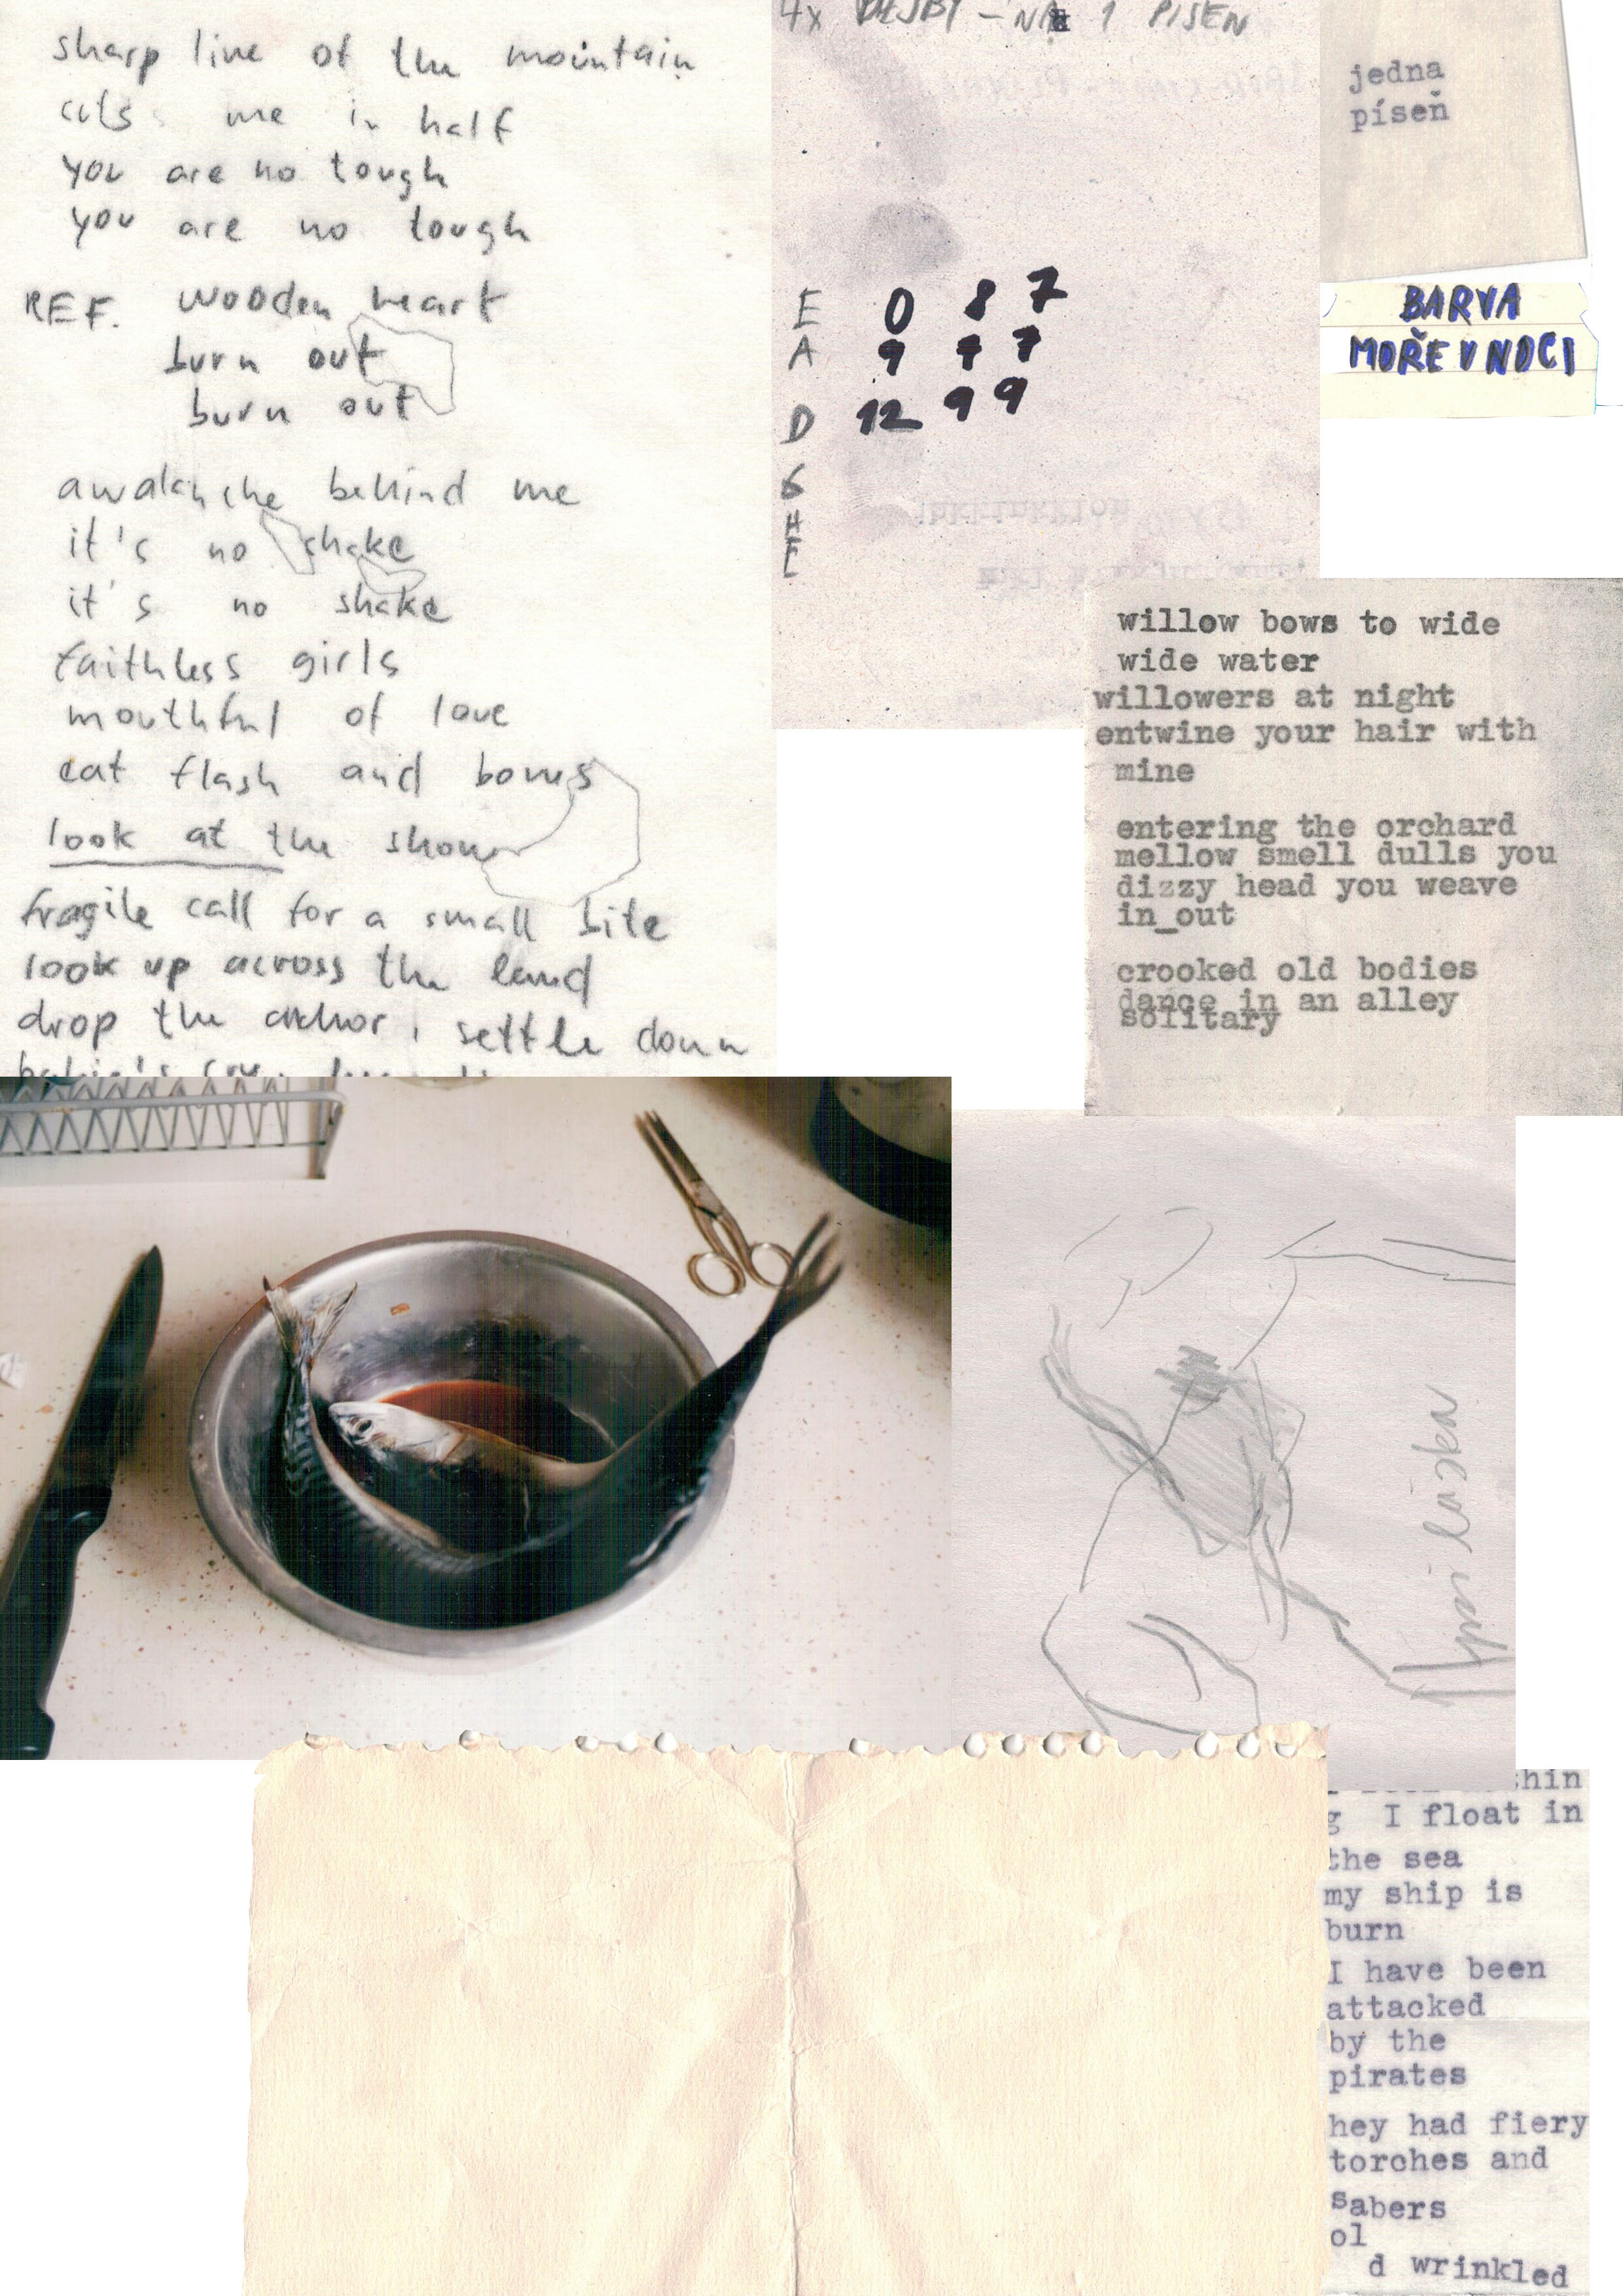 sharp line of the mountain
cuts me in half
you are no tough
you are no tough
REF. wooden heart
burn out
burn out
awalanche behind me
it's no shake
it's no shake
faithless girls
mouthful of love
eat flash and bones
look at the show
fragile call for a small bite
look up across the land
drop the anchor, settle down
4x – NA 1 PISEN
E 0 8 7
A 9 7 7
D 12 9 9
G
H
E
jedna
píseň
BARVA
MOŘE V NOCI
willow bows to wide
wide water
willowers at night
entwine your hair with
mine
entering the orchard
mellow smell dulls you
dizzy head you weave
in_out
crooked old bodies
dance in an alley
solitary
psí láska
g I float in
the sea
my ship is
burn
I have been
attacked
by the
pirates
hey had fiery
torches and
sabers
ol
d wrinkled